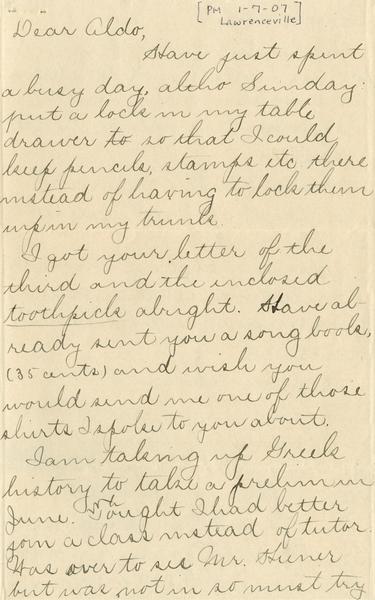 [PM 1-7-07
Lawrenceville]
Dear Aldo,
Have just spent
a busy day, altho Sunday:
put a lock in my table
drawer to so that I could
keep pencils, stamps etc there
instead of having to lock them
up in my trunk.
I got your letter of the
third and the inclosed
toothpick alright. Have al-
ready sent you a song book,
(35 cents) and wish you
would send me one of those
shirts I spoke to you about.
I am taking up Greek
history to take a prelim in
June. Tought I had better
join a class instead of tutor.
Was over to see Mr.
but was not in so must try